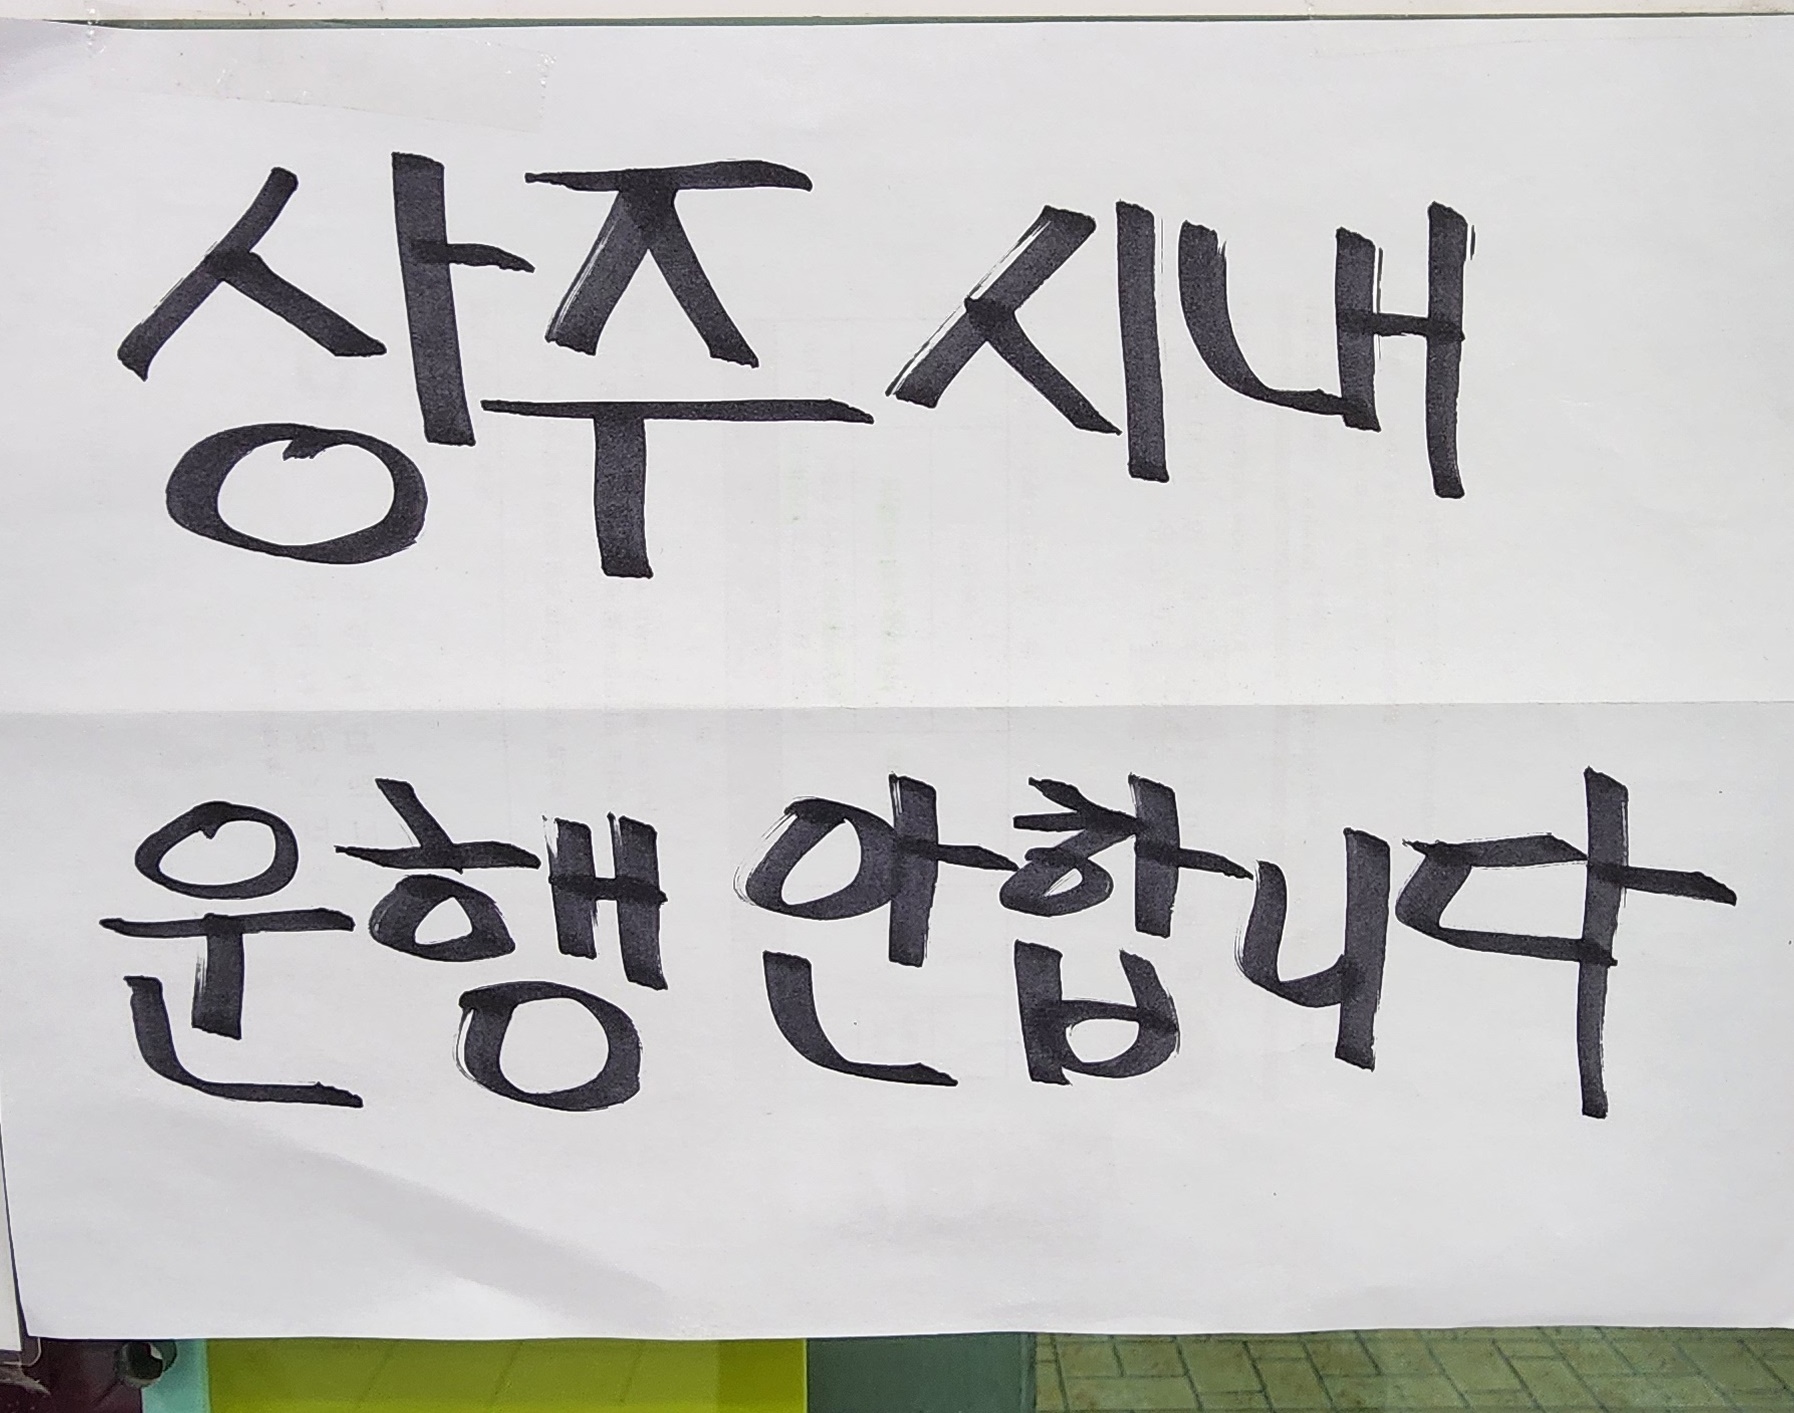 상주 시내
운행 안합니다